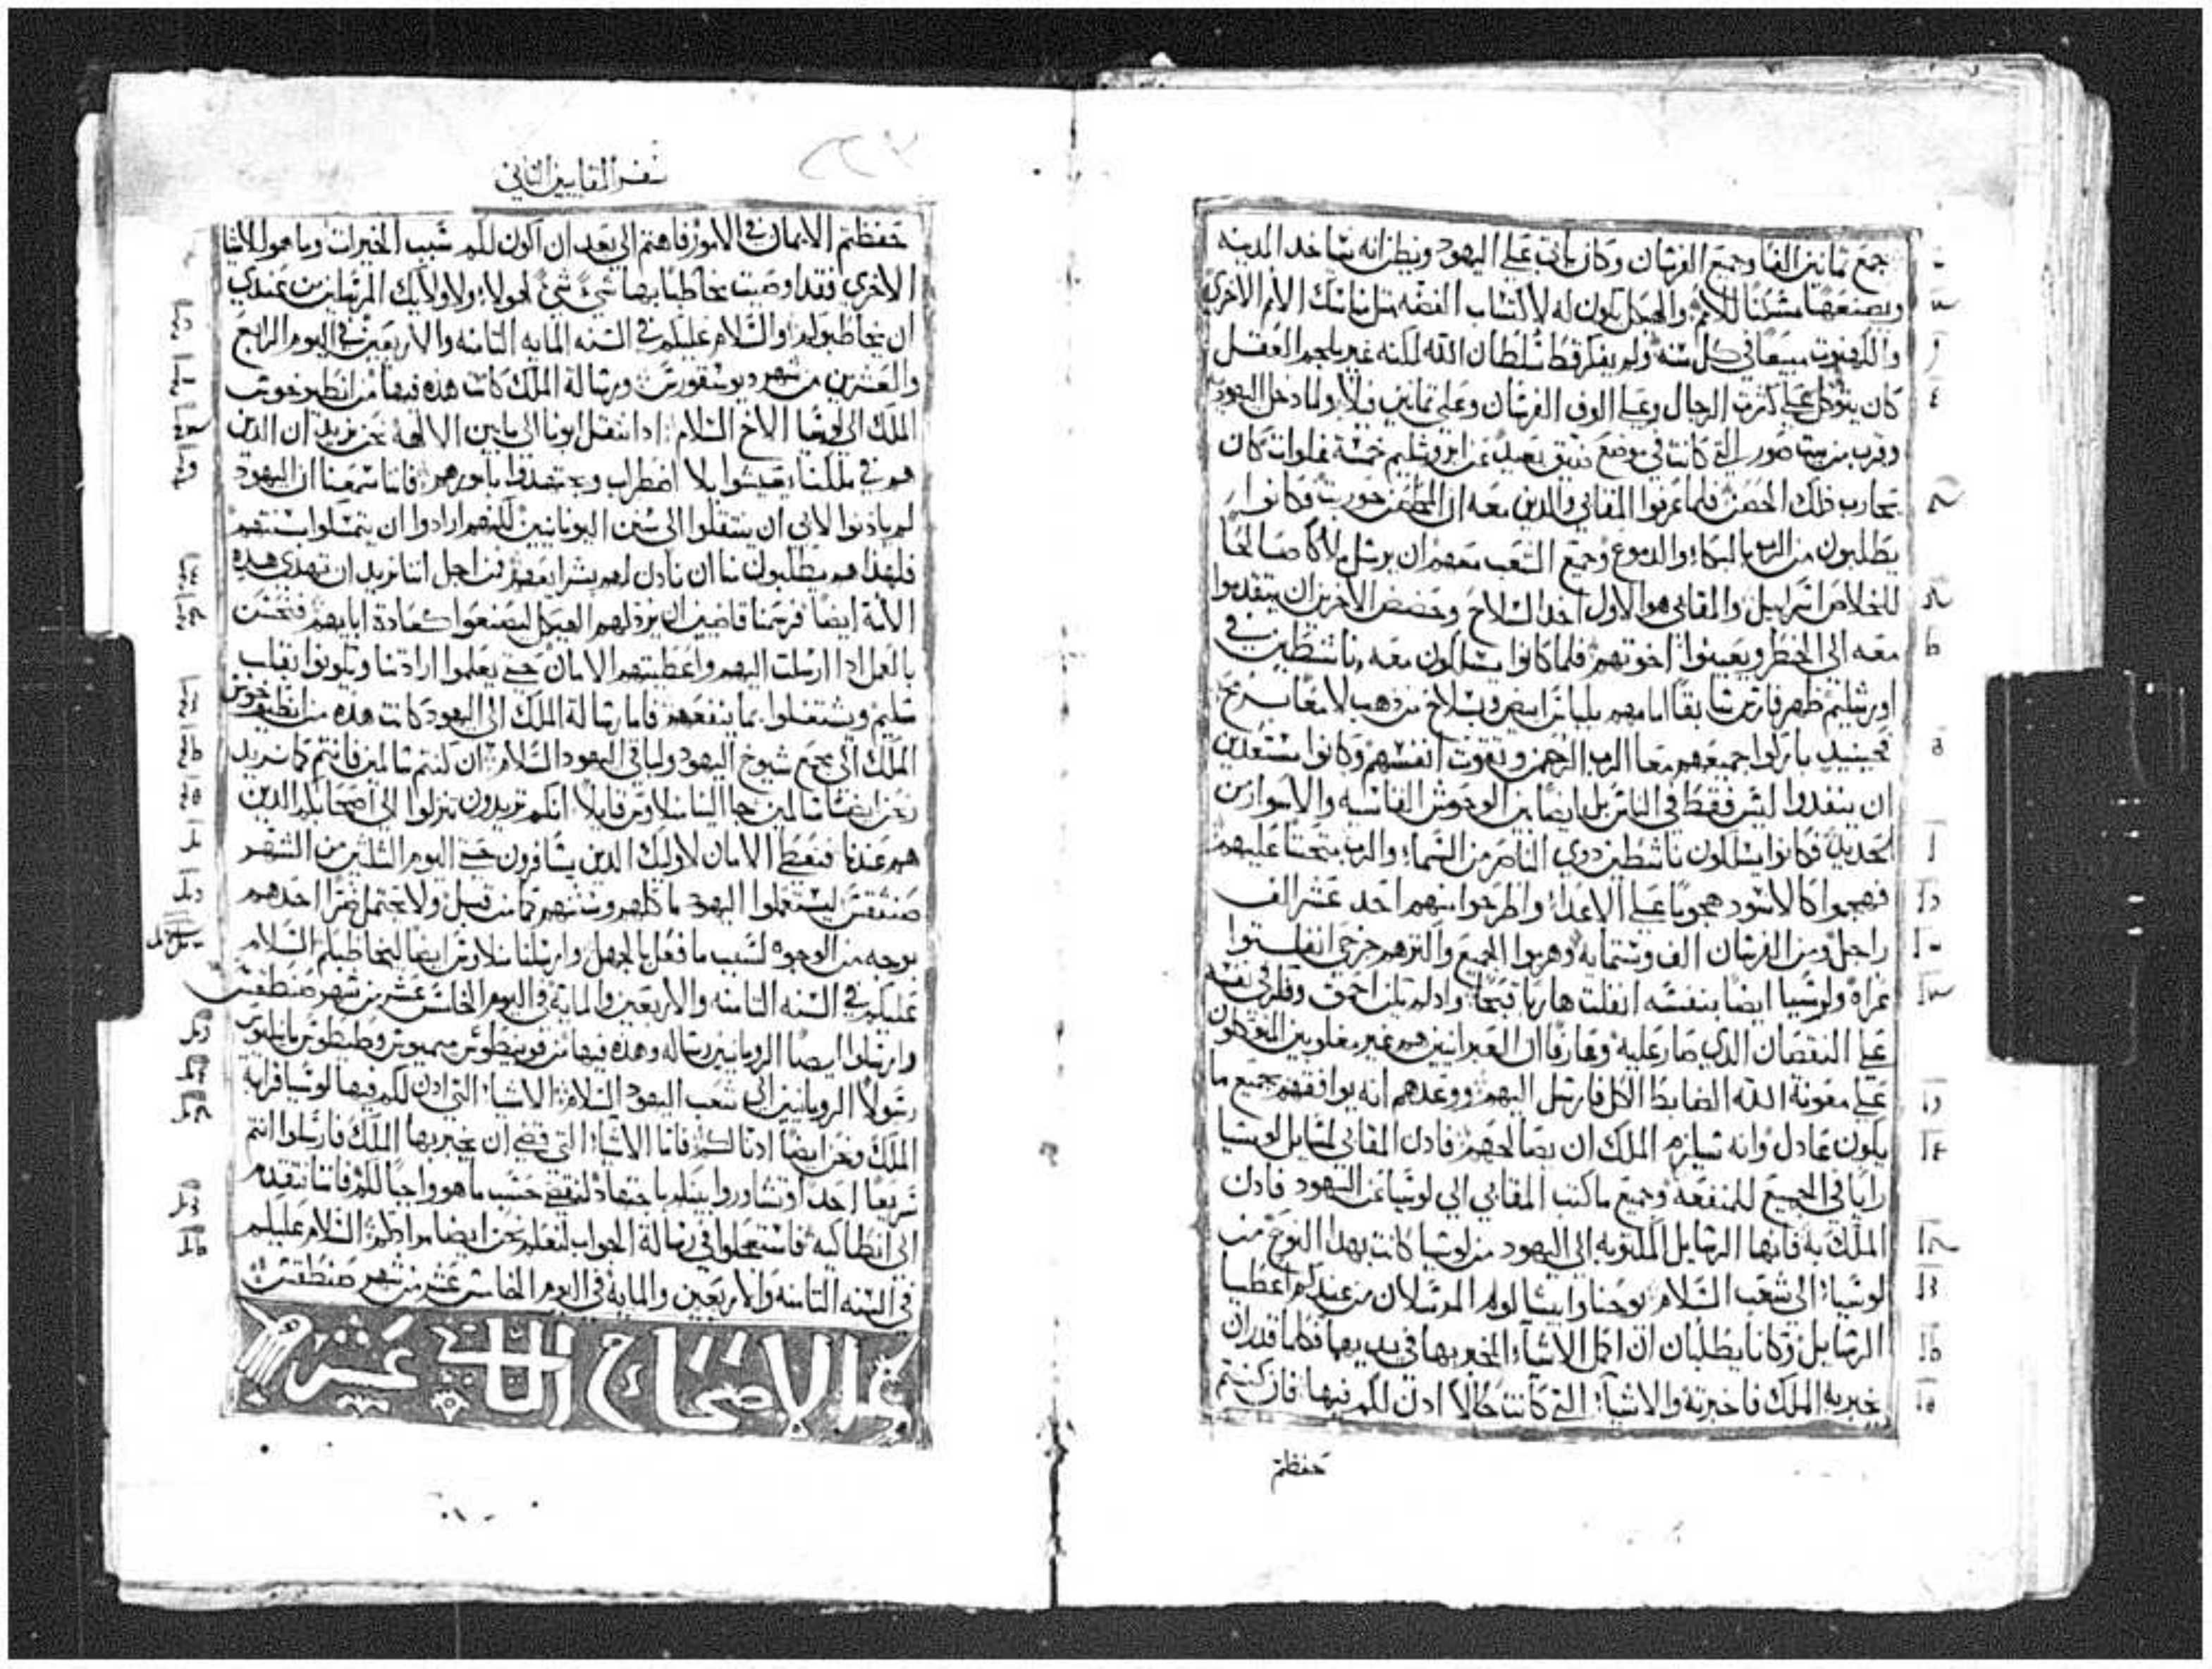 جمع تمانين الفا وجميع الفرسان وكان ياتي علي اليهود ويظن انه سياخد المدينه
ويصنعها مسكنا للامم والهيكل يكون له لاكتساب الفضه مثل مناسك الامم الاخري
والكهنوت مبيعا في كل سنه ولم يفكر قط سلطان الله لكنه غير ملجم العقل
كان يتوكل علي كثرت الرجال وعلي الوف الفرسان وعلي تمانين فيلا ولما دخل اليهوديه
وقرب من بيت صور التي كانت في موضع ضيق بعيد عن اورشليم خمسة غلوات كان
يحارب ذلك الحصن فلما عرفوا المقابي والدين معه ان الحصن حورب فكانوا
يطلبون من الرب بالبكاء والدموع وجميع الشعب معهم ان يرسل ملاكا صالحا
لخلاص اسرايل والمقابي هو الاول اخد السلاح وحضض الاخرين ان يتقدموا
معه الي الخطر ويعينوا اخوتهم فلما كانوا يسلكون معه ناشطين في
اورشليم ظهر فارس سابقا امامهم بلباس ابيض وبسلاح من دهب لامعا برمح
فحينيد باركوا جميعهم معا الرب الرحمن وتقوت انفسهم وكانوا مستعدين
ان ينفدوا ليس فقط في الناس بل ايضا بين الوحوش القاسيه والاسوار من
الحديد فكانوا يسلكون ناشطين دوي الناصر من السما والرب يتحنن عليهم
فهجموا كالاسود هجوما علي الاعدا واطرحوا منهم احد عشر الف
راجل ومن الفرسان الف وستمايه وهربوا الجميع واكثرهم جرحي انفلتوا
عراة ولوسيا ايضا بنفسه انفلت هاربا قبحا وادلم يكن احمق وفكر في نفسه
علي النقصان الدي صار عليه وعارفا ان العبرانيين هم غير مغلوبين المتكلون
علي معونة الله الضابط الكل فارسل اليهم ووعدهم انه يوافقهم بجميع ما
يكون عادل وانه سيلزم الملك ان يصالحهم فادن المقابي لسايل لوسيا
رايا في الجميع للمنفعة وجميع ما كتب المقابي الي لوسيا عن اليهود فادن
الملك به فانها الرسايل المكتوبه الي اليهود من لوسيا كانت بهدا النوع من
لوسيا الي شعب السلام يوحنا وابيسالوم المرسلان من عندكم اعطيا
الرسايل وكانا يطلبان ان اكمل الاشيا المخبر بها في يديهما فكلما قدر ان
يخبر به الملك فاخبرته والاشيا التي كانت حالا ادن لكم فيها فان كنتم
حفظتم
سفر المقابيين التاني
حفظتم الايمان في الامور فاهتم الي بعد ان اكون لكم سبب الخيرات وما هو الاشيا
الاخري فقد اوصيت مخاطبا بها شي شي لهولاء ولاولايك المرسلين من عندي
ان يخاطبوكم والسلام عليكم في السنه المايه التامنه والاربعين في اليوم الرابع
والعشرين من شهر ديوسقورس ورسالة الملك كانت هذه فيها من انطيوخوس
الملك الي لوسيا الاخ السلام ادا انتقل ابونا الي ما بين الالهة نحن نريد ان الدين
هم في ملكنا يعيشوا بلا اضطراب ويجتهدوا بامورهم فاننا سمعنا ان اليهود
لم يادنوا لابي ان ينتقلوا الي سنن اليونانيين لكنهم ارادوا ان يتمسكوا بسنتهم
فلهذا هم يطلبون منا ان نادن لهم بشرايعهم فمن اجل اننا نريد ان تهدي هده
الامة ايضا فرسمنا قاضيين ان يرد لهم الهيكل ليصنعوا كعادة ابايهم فتحسن
بالعمل ادا ارسلت اليهم واعطيتهم الامان حتي يعلموا ارادتنا ويكونوا بقلب
سليم ويشتغلوا بما ينفعهم فاما رسالة الملك الي اليهود كانت هده من انطيوخوس
الملك الي مجمع شيوخ اليهود ولباقي اليهود السلام ان كنتم سالمين فانتم كما نريد
نحن ايضا سالمين جا الينا منلاوس قايلا انكم تريدون تنزلوا الي اصحابكم الدين
هم عندنا فنعطي الامان لاوليك الدين يسافرون حتي اليوم الثلثين من الشهر
صنتقس ليستعملوا اليهود ماكلهم وسنتهم كما من قبل ولا يحتمل ضرا احدهم
بوجه من الوجوه لسبب ما فعل بالجهل وارسلنا منلاوس ايضا ليخاطبكم السلام
عليكم في السنه التامنه والاربعين والمايه في اليوم الخامس عشر من شهر صنطقس
وارسلوا ايضا الرومانيين رساله وهده فيها من قوينطوس ميميوس وطيطوس مانيليوس
رسولا الرومانيين الي شعب اليهود السلام الاشيا التي ادن لكم فيها لوسيا قرابة
الملك ونحن ايضا ادنا لكم فاما الاشيا التي قضي ان يخبر بها الملك فارسلوا انتم
سريعا احد او تشاوروا بينكم باجتهاد لنقضي حسب ما هو واجبا لكم فاننا نتقدم
الي انطاكيه فاستعجلوا في رسالة الجواب لنعلم نحن ايضا مرادكم السلام عليكم
في السنه التامنه والاربعين والمايه في اليوم الخامس عشر من شهر صنطقس
الاصحاح التاني عشر